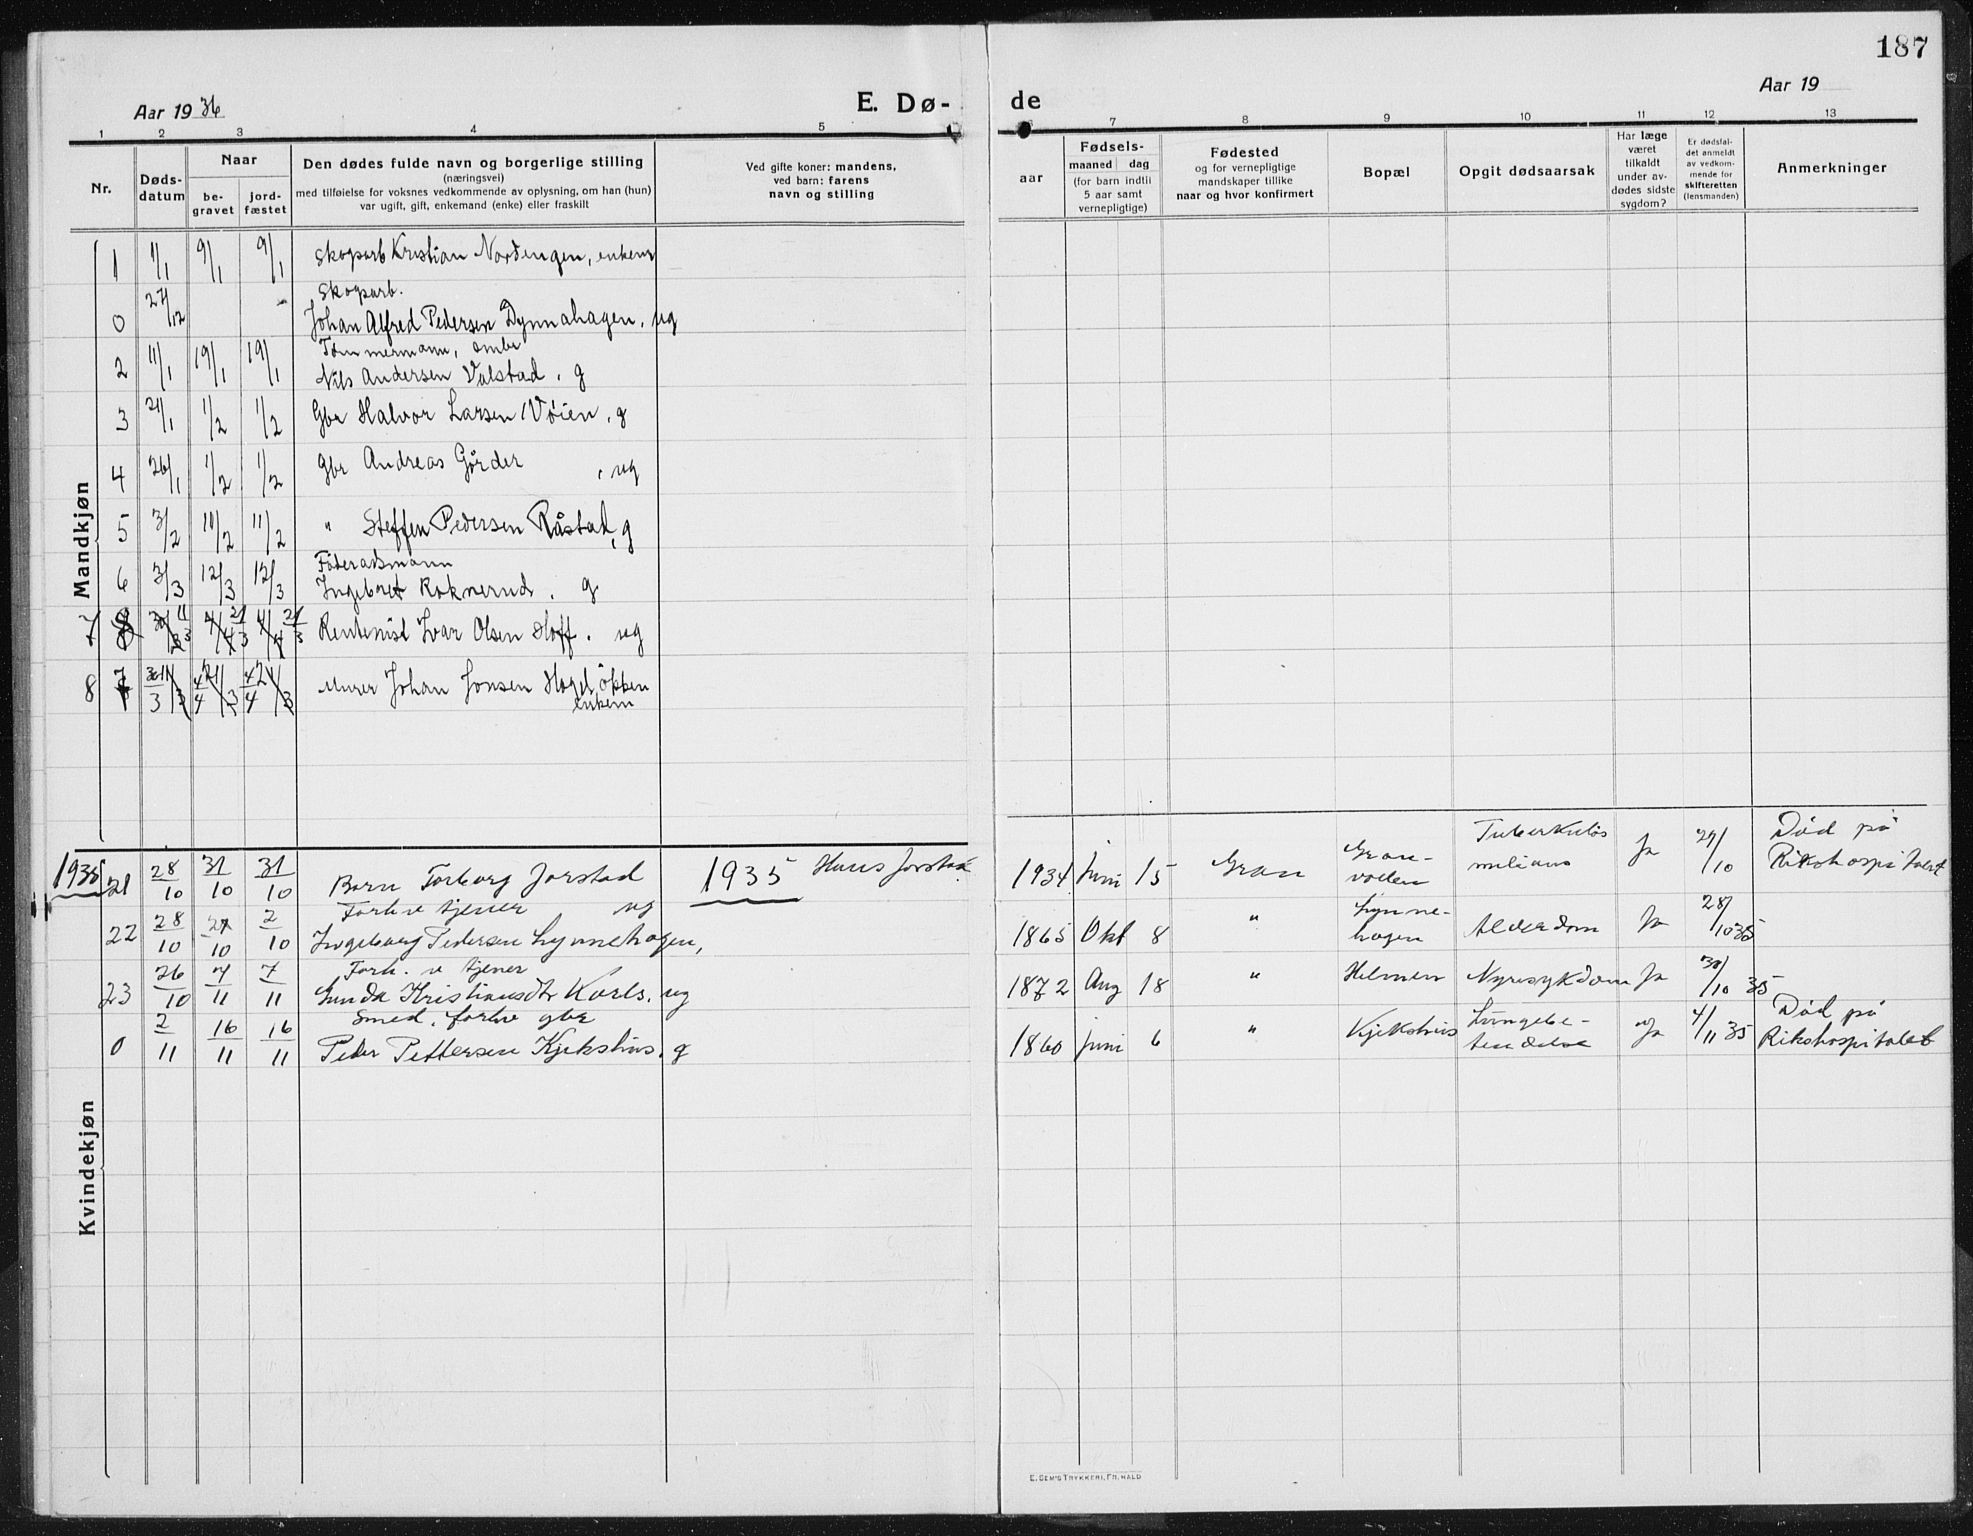 187
Aar 1936
E. Dø-
de
Aar 19
1 2 3 4 5 6 7 8 9 10 11 12 13
Nr.
Døds-
datum
Naar
be-
gravet
jord-
fæstet
Den dødes fulde navn og borgerlige stilling
(næringsvei)
med tilføielse for voksnes vedkommende av oplysning, om han (hun)
var ugift, gift, enkemand (enke) eller fraskilt
Ved gifte koner: mandens,
ved barn: farens
navn og stilling
aar
Fødsels-
maaned dag
(for barn indtil
5 aar samt
vernepligtige)
Fødested
og for vernepligtige
mandskaper tillike
naar og hvor konfirmert
Bopæl
Opgit dødsaarsak
Har læge
været
tilkaldt
under av-
dødes sidste
sygdom?
Er dødsfal-
det anmeldt
av vedkom-
mende for
skifteretten
(lensmanden)
Anmerkninger
Mandkjøn
1 1/1 9/1 9/1 Skogsarb Kristian Nordengen, enkem
Skogsarb.
0 27/12 - Johan Alfred Pedersen Dynnahagen, ug
Tømmermann,
2 11/1 19/1 19/1 Nils Andersen Valstad, g
3 21/1 1/2 1/2 Gbr Halvor Larsen Vøien, g
4 26/1 1/2 1/2 Gbr Andreas Gårder, ug
5 3/2 11/2 11/2 " Steffen Pedersen Råstad, g
Føderaadsmann
6 3/3 12/3 12/3 Ingebret Roknerud, g
7 11/3 21/3 21/3 Rentenist Ivar Olsen Hoff, ug
8 31/3 4/4 4/4 Murer Johan Jonsen Hageløkken
enkem
1935 21 28/10 31/10 31/10 Barn Torborg Jorstad 1935 Hans Jorstad 1934 juni 15 Gran Gran-
vollen Tuberkuløs
miliaris Ja 29/10 Død på
Rikshospitalet
Forhv tjener ug
22 28/10 2/10 Ingeborg Pedersen Lynnehagen, 1865 Okt 8 " Lynne-
hagen Alderdom Ja 28/10 35
Forh. v tjener
23 26/10 7/11 7/11 Gunda Kristiansdtr Korls, ug 1872 Aug 18 " Helmen Nyresykdom Ja 30/10 35
Smed, forhv gbr
0 2/11 16/11 16/11 Peder Pettersen Kjekshus, g 1860 juni 6 " Kjekshus Lungebe-
tendelse Ja 4/11 35 Død på
Rikshospitalet
Kvindekjøn
E. SEM'S TRYKKERI, FR. HALD